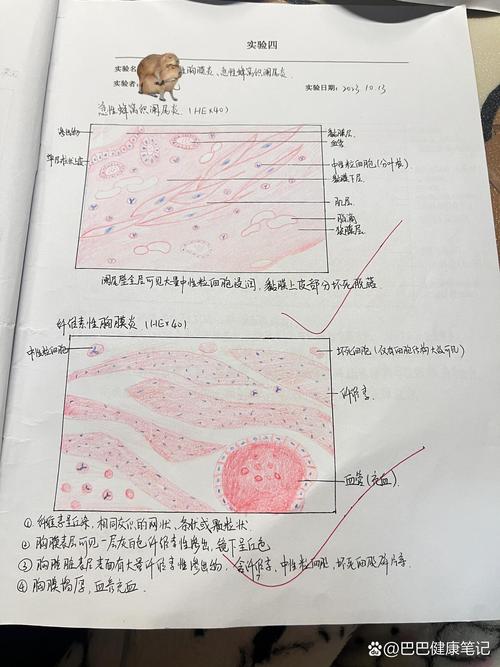 实验四
实验名 性胸膜炎、急性蜂窝织阑尾炎.
实验者: 实验日期: 2023.10.13
急性蜂窝织阑尾炎.(HE×40)
渗出物 黏膜层.
血管
中性粒细胞(分叶核)
黏膜下层.
肌层.
脂滴
浆膜层.
阑尾壁全层可见大量中性粒细胞浸润,黏膜上皮部分坏死脱落.
纤维素性胸膜炎 (HE×40)
中性粒细胞 坏死细胞(仅有细胞结构大致可见)
纤维素.
血管(充血)
①纤维素呈红染,相间交织的网状、条状或颗粒状.
②胸膜表层可见一层灰白色纤维素性渗出,镜下呈红色
③胸膜脏层表面有大量纤维素性渗出物,含纤维素、中性粒细胞、坏死细胞碎片等.
④胸膜增厚,血管充血.
巴巴健康笔记